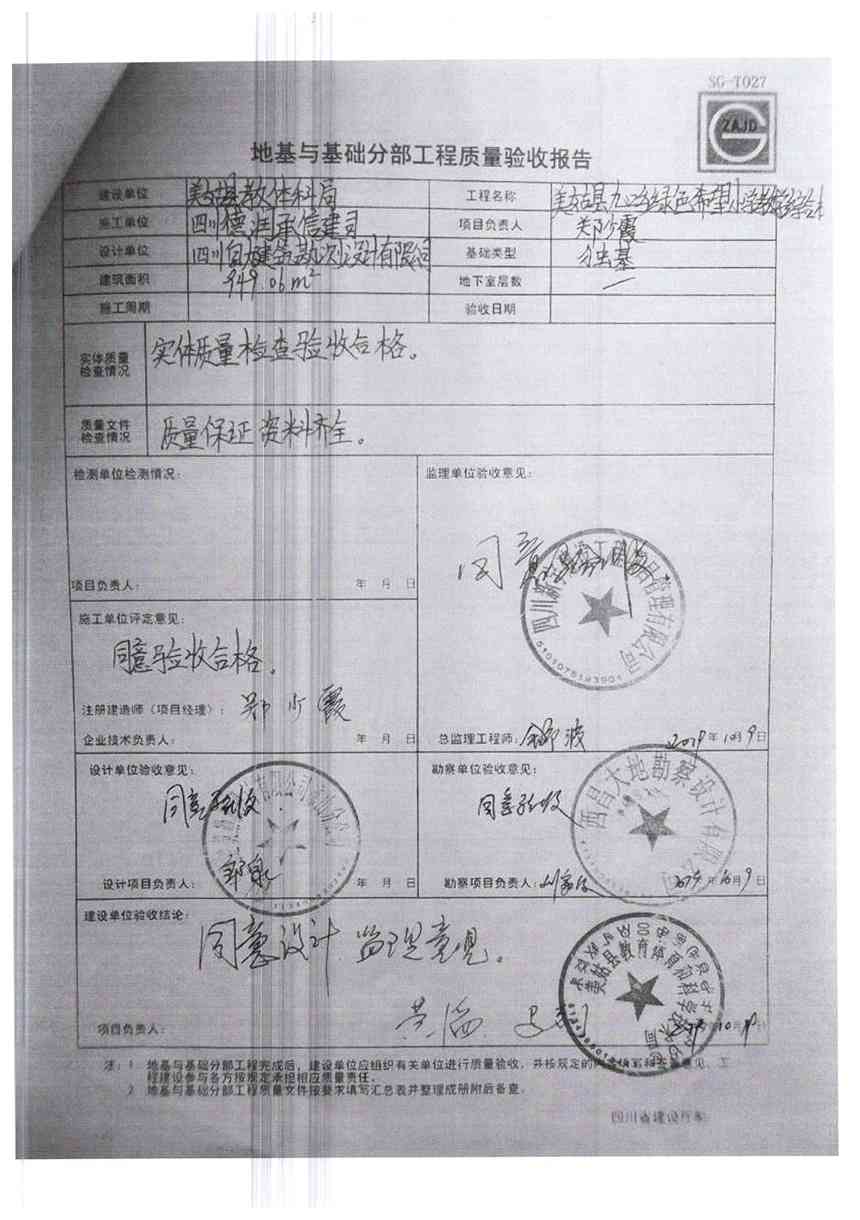 SG-T027
ZAJD
地基与基础分部工程质量验收报告
建设单位 美姑县教体科局 工程名称 美姑县九口乡绿色希望小学教学综合楼
施工单位 四川德 承信建司 项目负责人 郑少霞
设计单位 四川 建筑 设计有限公司 基础类型 独基
建筑面积 949.06m² 地下室层数 —
施工周期 验收日期
实体质量
检查情况
实体质量检查验收合格。
质量文件
检查情况
质量保证资料齐全。
检测单位检测情况:
项目负责人: 年 月 日
监理单位验收意见:
同意
5101075183901
总监理工程师: 波 2019年10月9日
施工单位评定意见:
同意验收合格。
注册建造师(项目经理): 郑少霞
企业技术负责人: 年 月 日
设计单位验收意见:
同意验收
设计项目负责人: 邹泉 年 月 日
勘察单位验收意见:
同意验收
西昌大地勘察设计有限公司
勘察项目负责人: 年10月9日
建设单位验收结论:
同意设计 监理意见。
美姑县教育体育和科学技术局
项目负责人: 年10月 日
注: 1 地基与基础分部工程完成后,建设单位应组织有关单位进行质量验收,并按规定的内容填写和签署意见、工
程建设参与各方按规定承担相应质量责任。
2 地基与基础分部工程质量文件按要求填写汇总表并整理成册附后备查。
四川省建设厅制